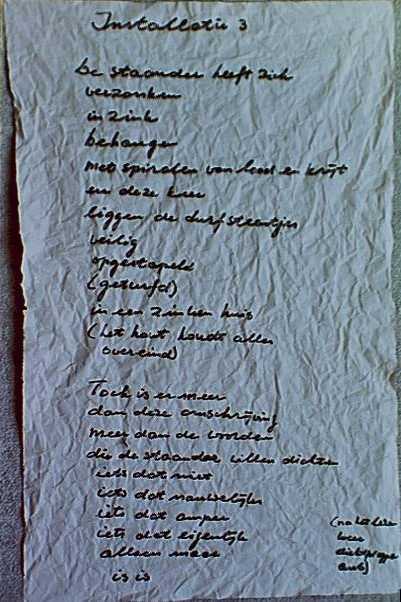 Installatie 3
De staander heeft zich
verzonken
in zink
behangen
met spiralen van lood en krijt
en deze keer
liggen de durfsteentjes
veilig
opgestapeld
(gesuufd)
in een zinken huis
(het hout houdt alles
overeind)
Toch is er meer
dan deze omschrijving
meer dan de woorden
die de staander willen dichten
iets dat niet
iets dat nauwelijks
iets dat amper
iets dat eigenlijk
alleen maar
is is
(na
aub)